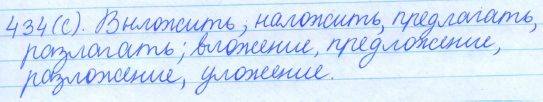 434(с). Выложить, наложить, предлагать,
разлагать; вложение, предложение,
разложение, уложение.